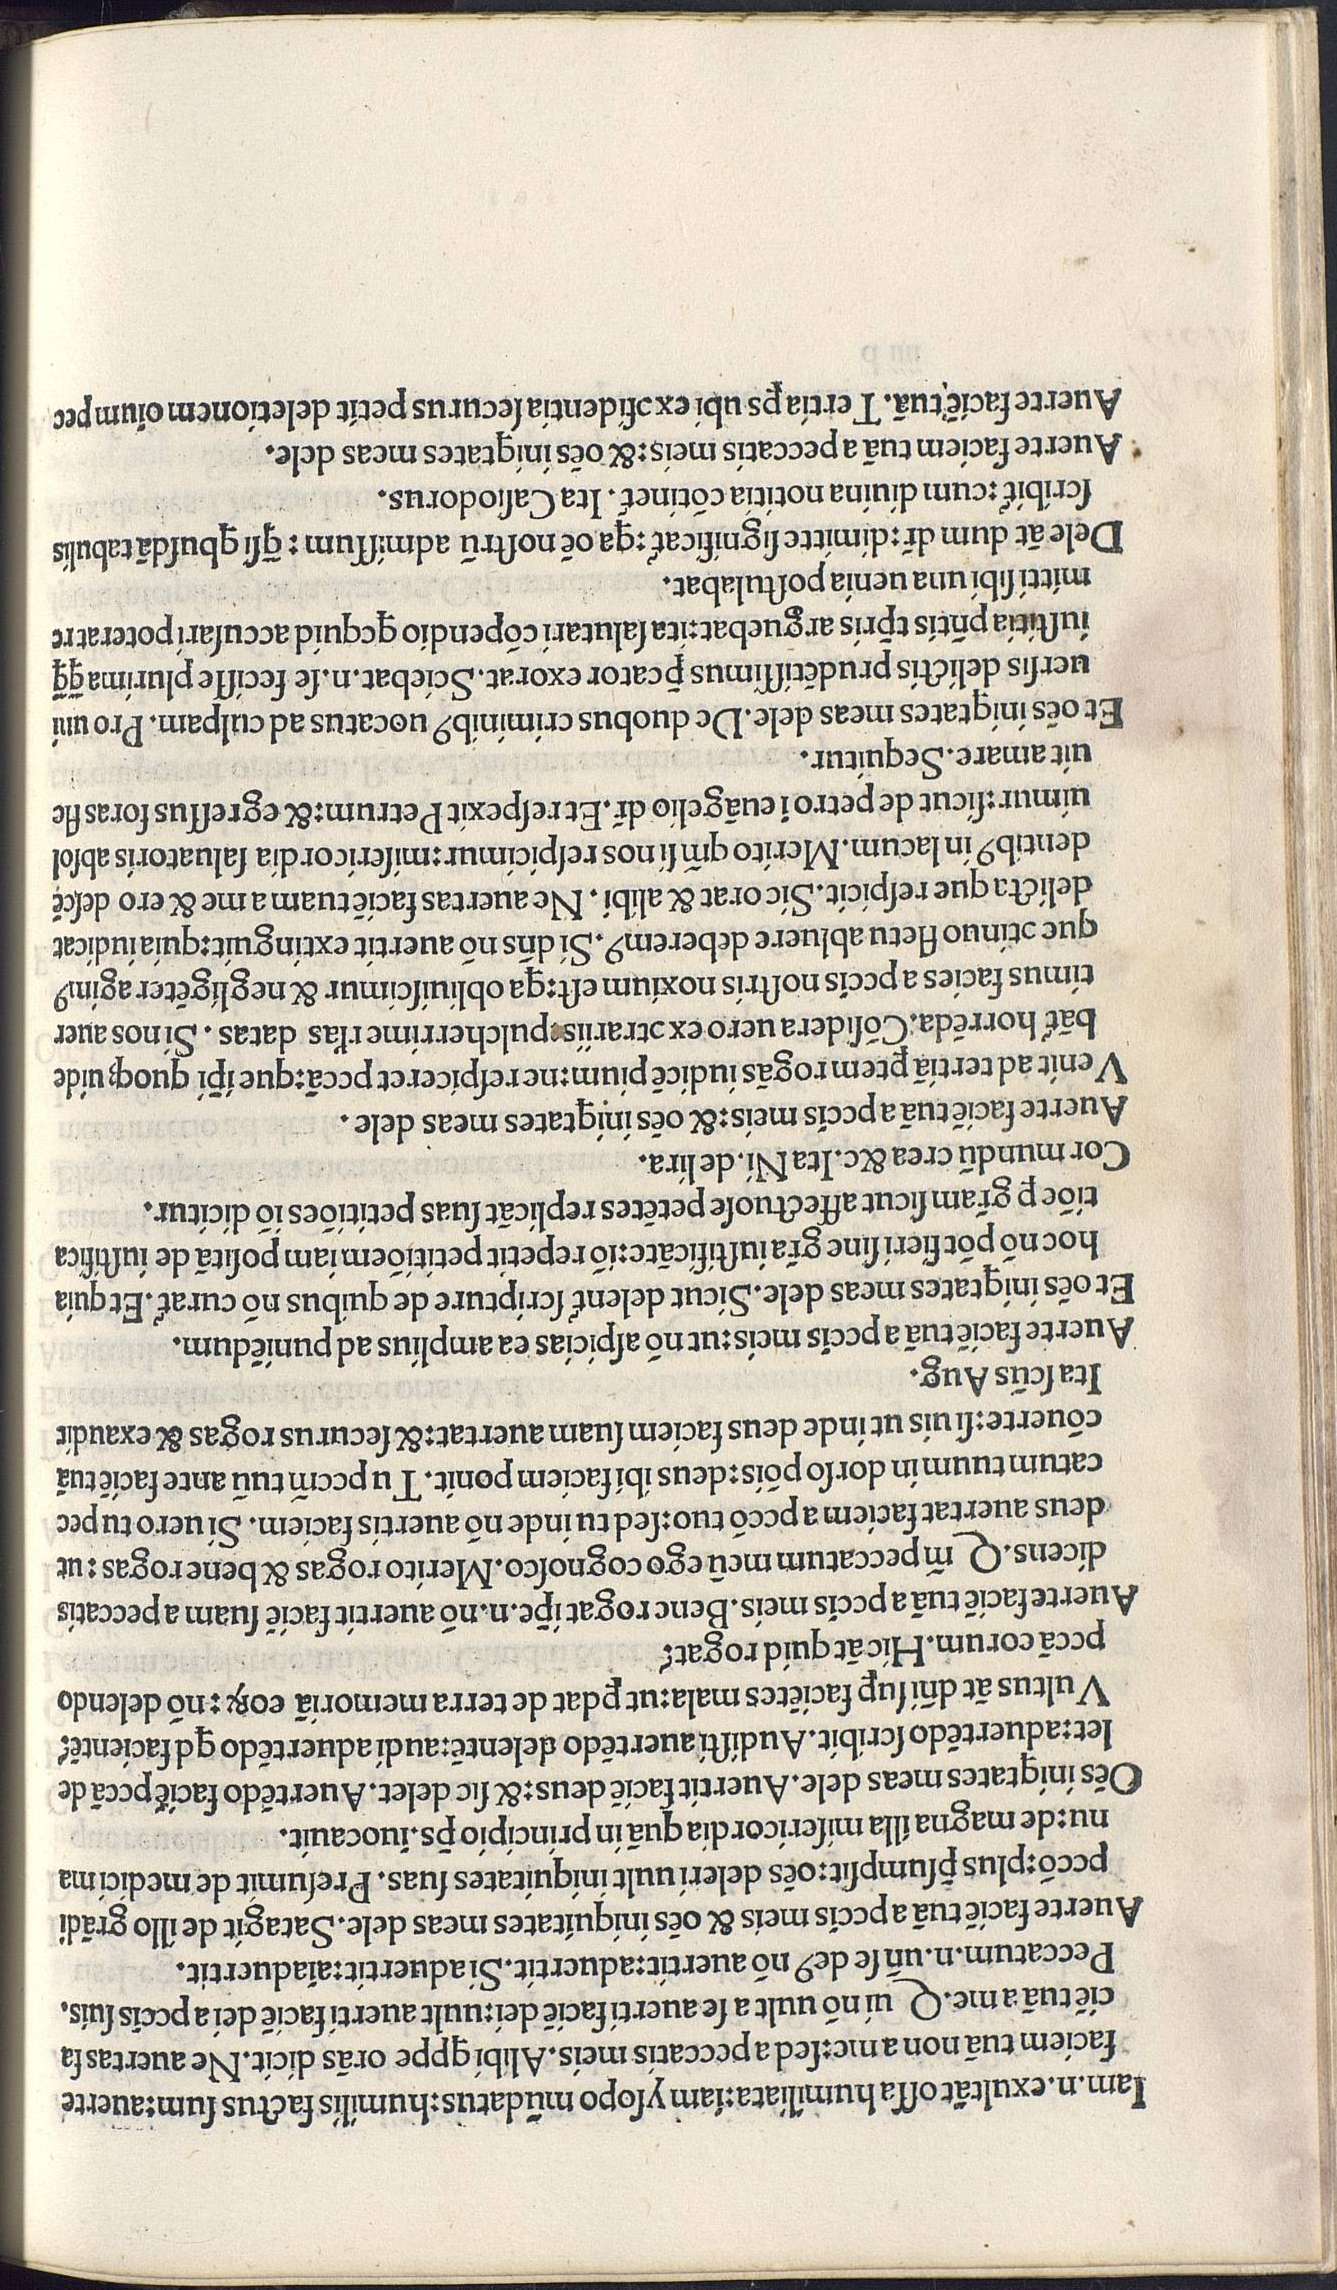 Iam.n.exultāt ossa humiliata:iam ysopo mūdatus:humilis factus sum:auerte
faciem tuā non a me:sed a peccatis meis.Alibi qppe orās dicit.Ne auertas fa
ciē tuā a me.Q ui nō uult a se auerti faciē dei:uult auerti faciē dei a pccīs suis.
Peccatum.n.uñ se deꝰ nō auertit:aduertit.Si aduertit:aīaduertit.
Auerte faciē tuā a pccīs meis & oēs iniquitates meas dele.Satagit de illo grādi
pccō:plus p̄sumpsit:oēs deleri uult iniquitates suas. Presumit de medicina
nu:de magna illa misericordia quā in principio p̄s.īuocauit.
Oēs iniqtates meas dele.Auertit faciē deus:& sic delet.Auertēdo faciē pccā de
let:aduertēdo scribit.Audisti auertēdo delentē:audi aduertēdo qd facientē?
Vultus āt dñi sup̱ faciētes mala:ut p̱dat de terra memoriā eoꝝ:nō delendo
pccā eorum.Hic āt quid rogat?
Auerte faciē tuā a pccīs meis.Bene rogat ip̄e.n.nō auertit faciē suam a peccatis
dicens.Q m̄ peccatum meū ego cognosco.Merito rogas & bene rogas:ut
deus auertat faciem a pccō tuo:sed tu inde nō auertis faciem. Si uero tu pec
catum tuum in dorso pōis:deus ibi faciem ponit. Tu pccm̄ tuū ante faciē tuā
cōuerte:si uis ut inde deus faciem suam auertat:& securus rogas & exaudit
Ita scūs Aug.
Auerte faciē tuā a pccīs meis:ut nō aspicias ea amplius ad puniēdum.
Et oēs iniqtates meas dele.Sicut delent̄ scripture de quibus nō curat̄.Et quia
hoc nō pōt fieri sine gr̄a iustificāte:iō repetit petitiōem iam positā de iustifica
tiōe p̱ gr̄am sicut affectuose petētes replicāt suas petitiōes iō dicitur.
Cor mundū crea &c.Ita Ni.de lira.
Auerte faciē tuā a pccīs meis:& oēs iniqtates meas dele.
Venit ad tertiā p̱tem rogās iudicē pium:ne respiceret pccā:que ip̄i quoqꝫ uide
bāt̄ horrēda.Cōsidera uero ex ɔtrariis pulcherrime r̄las datas. Si nos auer
timus facies a pccīs nostris noxium est:qa obliuiscimur & negligēter agimꝰ
que ɔtinuo fletu abluere deberemꝰ.Si dñs nō auertit extinguit:quia iudicat
delicta que respicit.Sic orat & alibi. Ne auertas faciē tuam a me & ero descē
dentibꝰ in lacum.Merito qm̄ si nos respicimur:misericordia saluatoris absol
uimur:sicut de petro ī euāgelio dr̄.Et respexit Petrum:& egressus foras fle
uit amare.Sequitur.
Et oēs iniqtates meas dele.De duobus criminibꝰ uocatus ad culpam. Pro uni
uersis delictis prudētissimus p̄cator exorat.Sciebat.n.se fecisse plurima q̄q̄
iustitia pñtis tp̄ris arguebat:ita salutari cōpendio qcquid accusari poterat re
mitti sibi una uenia postulabat.
Dele āt dum dr̄:dimitte significat̄:qa oē nostrū admissum : q̄si qbusdā tabulis
scribit̄:cum diuina notitia cōtinet̄. Ita Casiodorus.
Auerte faciem tuā a peccatis meis:& oēs iniqtates meas dele.
Auerte faciē tuā.Tertia p̱s ubi ex ɔfidentia securus petit deletionem oīum pec